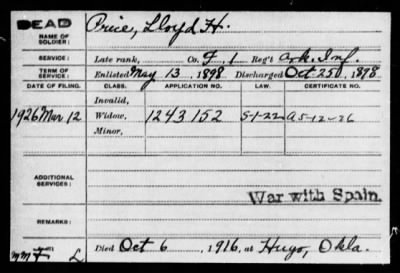 DEAD
NAME OF SOLDIER: Price, Lloyd H.
SERVICE: Late rank, Co. F, 1 Reg't Ark. Inf.
TERM OF SERVICE: Enlisted May 13, 1898 Discharged Oct 25, 1898
DATE OF FILING. CLASS. APPLICATION NO. LAW. CERTIFICATE NO.
Invalid,
1926 Mar. 12 Widow, 1243152 5-1-22 a5-12-26
Minor,
ADDITIONAL SERVICES:
War with Spain.
REMARKS:
Died Oct 6, 1916, at Hugo, Okla.